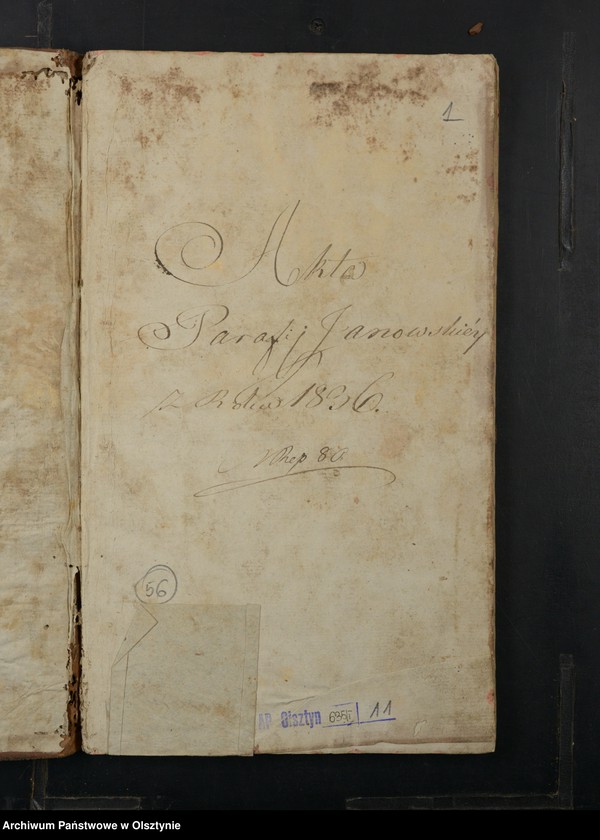 1
Akta
Parafij Janowskiéy
z Roku 1836.
Rep 80
56
AP Olsztyn 695/I 11
Archiwum Państwowe w Olsztynie